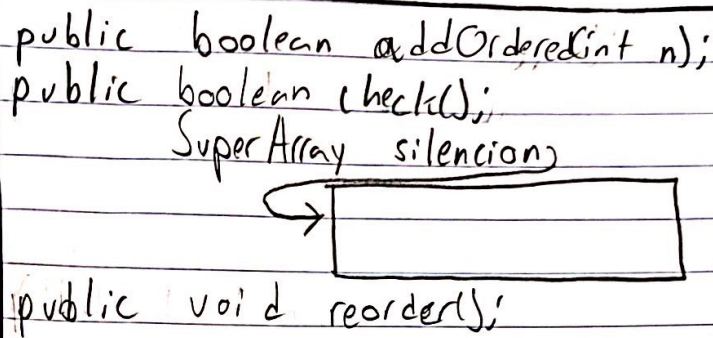 public boolean addOrdered(int n);
public boolean check();
SuperArray silencion
public void reorder();